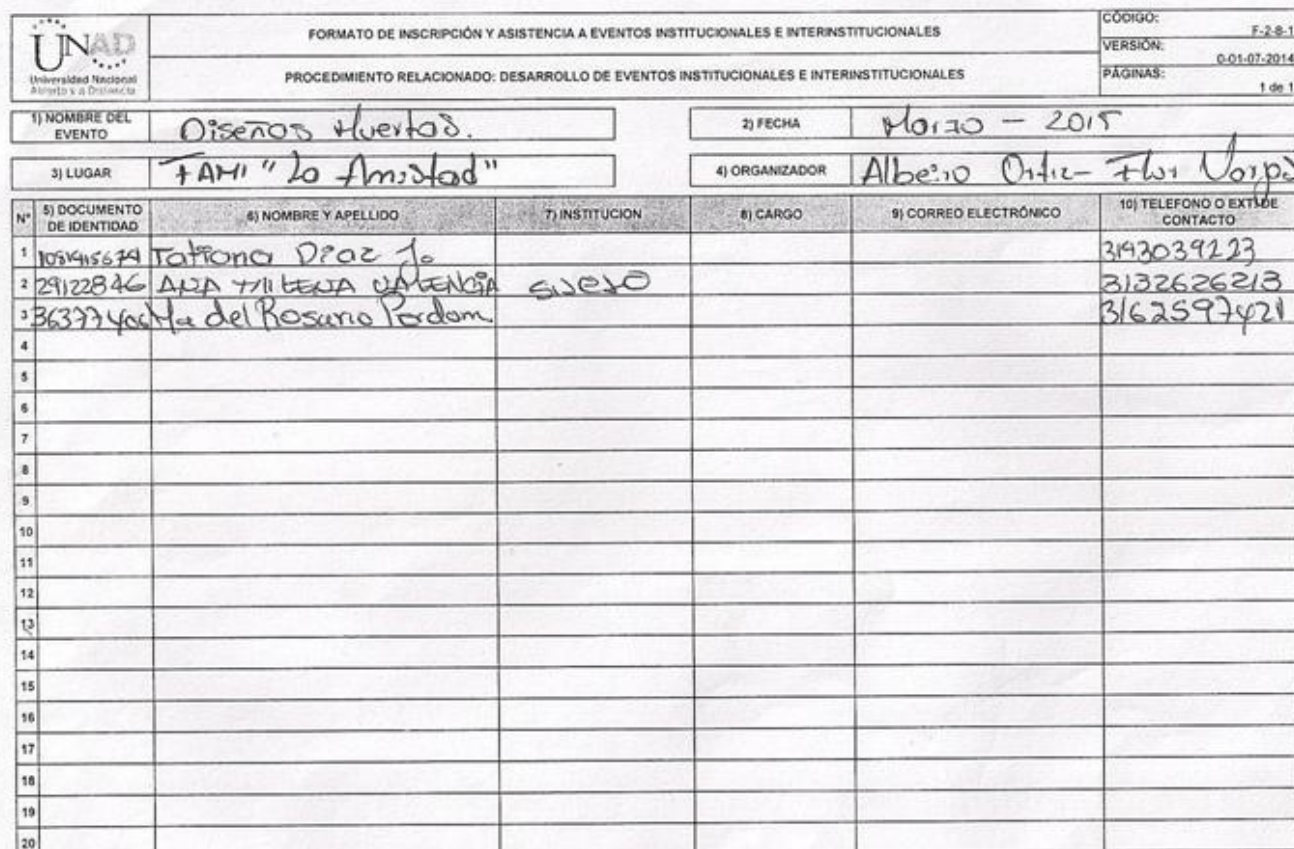 UNAD
Universidad Nacional
Abierta y a Distancia
FORMATO DE INSCRIPCIÓN Y ASISTENCIA A EVENTOS INSTITUCIONALES E INTERINSTITUCIONALES
PROCEDIMIENTO RELACIONADO: DESARROLLO DE EVENTOS INSTITUCIONALES E INTERINSTITUCIONALES
CÓDIGO:
F-2-8-1
VERSIÓN:
0-01-07-2014
PÁGINAS:
1 de 1
1) NOMBRE DEL EVENTO Diseños Huertas.
2) FECHA Marzo - 2015
3) LUGAR FAMI "La Amistad"
4) ORGANIZADOR Albeiro Ortiz- Flor Vargas
N° 5) DOCUMENTO DE IDENTIDAD 6) NOMBRE Y APELLIDO 7) INSTITUCION 8) CARGO 9) CORREO ELECTRÓNICO 10) TELEFONO O EXT. DE CONTACTO
1 Tatiana Diaz 3193039223
2 29122846 ANA MILENA VALENCIA 3132626213
3 36377406 Ma del Rosario Perdom 3162597421
4
5
6
7
8
9
10
11
12
13
14
15
16
17
18
19
20